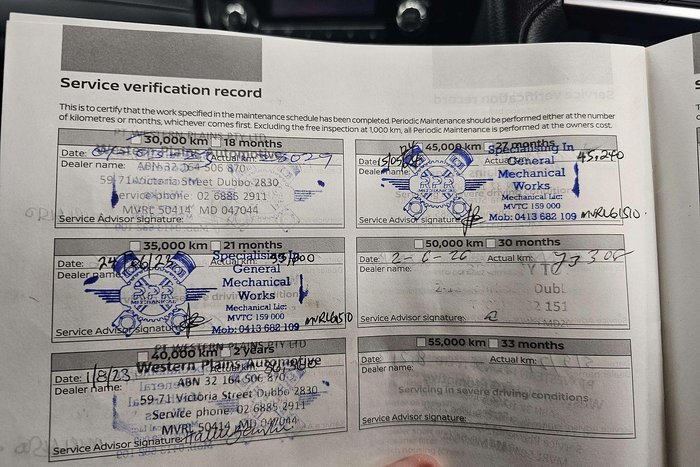 Service verification record
This is to certify that the work specified in the maintenance schedule has been completed. Periodic Maintenance should be performed either at the number
of kilometres or months, whichever comes first. Excluding the free inspection at 1,000 km, all Periodic Maintenance is performed at the owners cost.
30,000 km 18 months
Date: Actual km:
Dealer name: ABN 32 164 506 870
59-71 Victoria Street Dubbo 2830
Service phone: 02 6885 2911
MVRL 50414 MD 047044
Service Advisor signature:
35,000 km 21 months
Date: Actual km:
Dealer name:
Specialising In
General
Mechanical
Works
MECHANICAL
Mechanical Lic:
MVTC 159 000
Mob: 0413 682 109 MVRL61510
Service Advisor signature:
40,000 km 2 years
Western Plains Automotive
Date: 1/8/23
Dealer name: ABN 32 164 506 870
59-71 Victoria Street Dubbo 2830
Service phone: 02 6885 2911
MVRL 50414 MD 047044
Service Advisor signature:
45,000 km 27 months
Date: Actual km: 45,240
Dealer name:
Specialising In
General
Mechanical
Works
MECHANICAL
Mechanical Lic:
MVTC 159 000
Mob: 0413 682 109 MVRL61510
Service Advisor signature:
50,000 km 30 months
Date: Actual km:
Dealer name:
Service Advisor signature:
55,000 km 33 months
Date: Actual km:
Dealer name:
Servicing in severe driving conditions
Service Advisor signature: